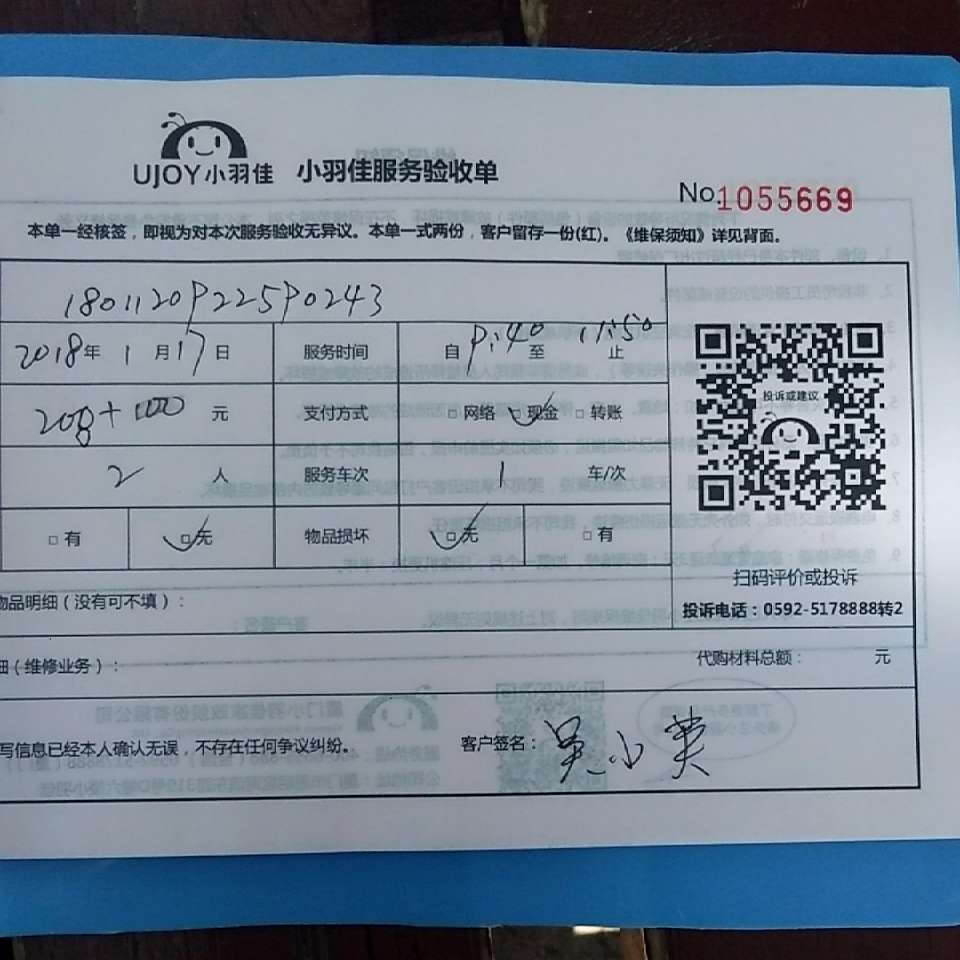 UJOY小羽佳 小羽佳服务验收单
No.1055669
本单一经核签，即视为对本次服务验收无异议。本单一式两份，客户留存一份(红)。《维保须知》详见背面。
180112OP225P0243
2018年 1月17日 服务时间 自 P:40 至 11:50 止
208+1000 元 支付方式 □网络 ☑现金 □转账
投诉或建议
2 人 服务车次 1 车/次
□有 ☑无 物品损坏 ☑无 □有
扫码评价或投诉
物品明细（没有可不填）：
投诉电话：0592-5178888转2
细（维修业务）： 代购材料总额： 元
写信息已经本人确认无误，不存在任何争议纠纷。 客户签名：吴小英